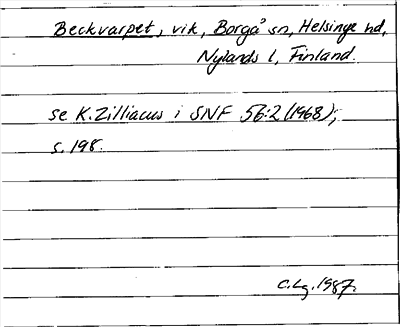 Beckvarpet, vik, Borgå sn, Helsinge hd,
Nylands l, Finland.
se K. Zilliacus i SNF 56:2 (1968),
s. 198.
C.Lg. 1987.